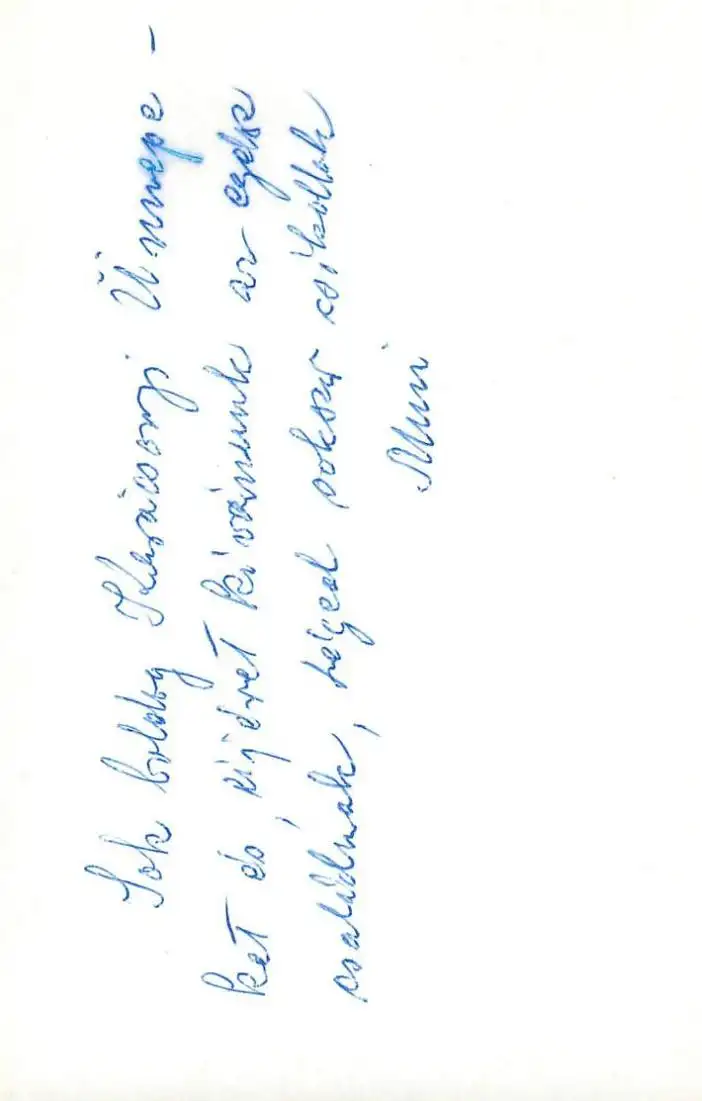 Sok boldog Karácsonyi Ünnepe-
ket és, újévet kívánunk az egész
családnak, téged sokszor csókollak
Muni